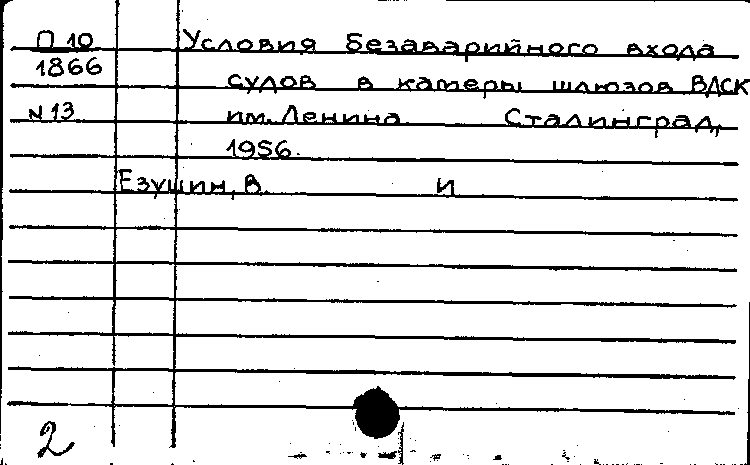 П 10 Условия безаварийного входа
1866 судов в камеры шлюзов ВДСК
N 13 им. Ленина Сталинград,
1956.
Езушин, В. И
2